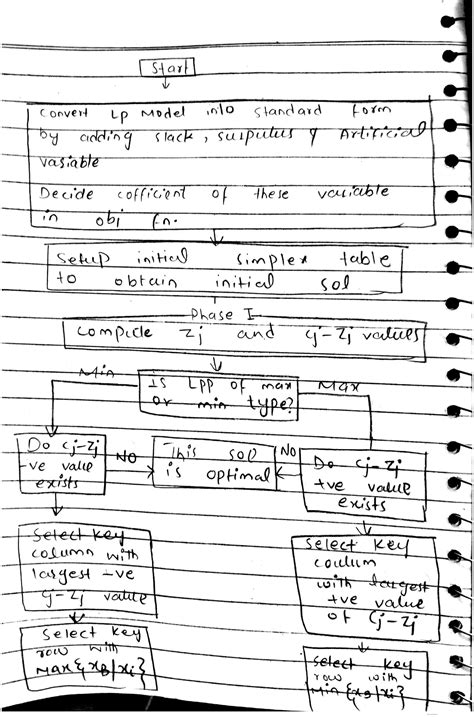 Start
Convert Lp Model into Standard form
by adding slack, suspulus & Artificial
vasiable
Decide cofficient of these variable
in obj fn.
Setup initial simplex table
to obtain initial sol
Phase I
compute Zj and Cj-Zj values
is LPP of max
or min type?
Min
Max
Do Cj-Zj
-ve value
exists
NO
This sol
is optimal
NO
Do Cj-Zj
+ve value
exists
Select key
column with
largest -ve
Cj-Zj value
Select key
coulum
with largest
+ve value
of Cj-Zj
Select key
row with
Max{xB/xi}
Select key
row with
Min{xB/xi}